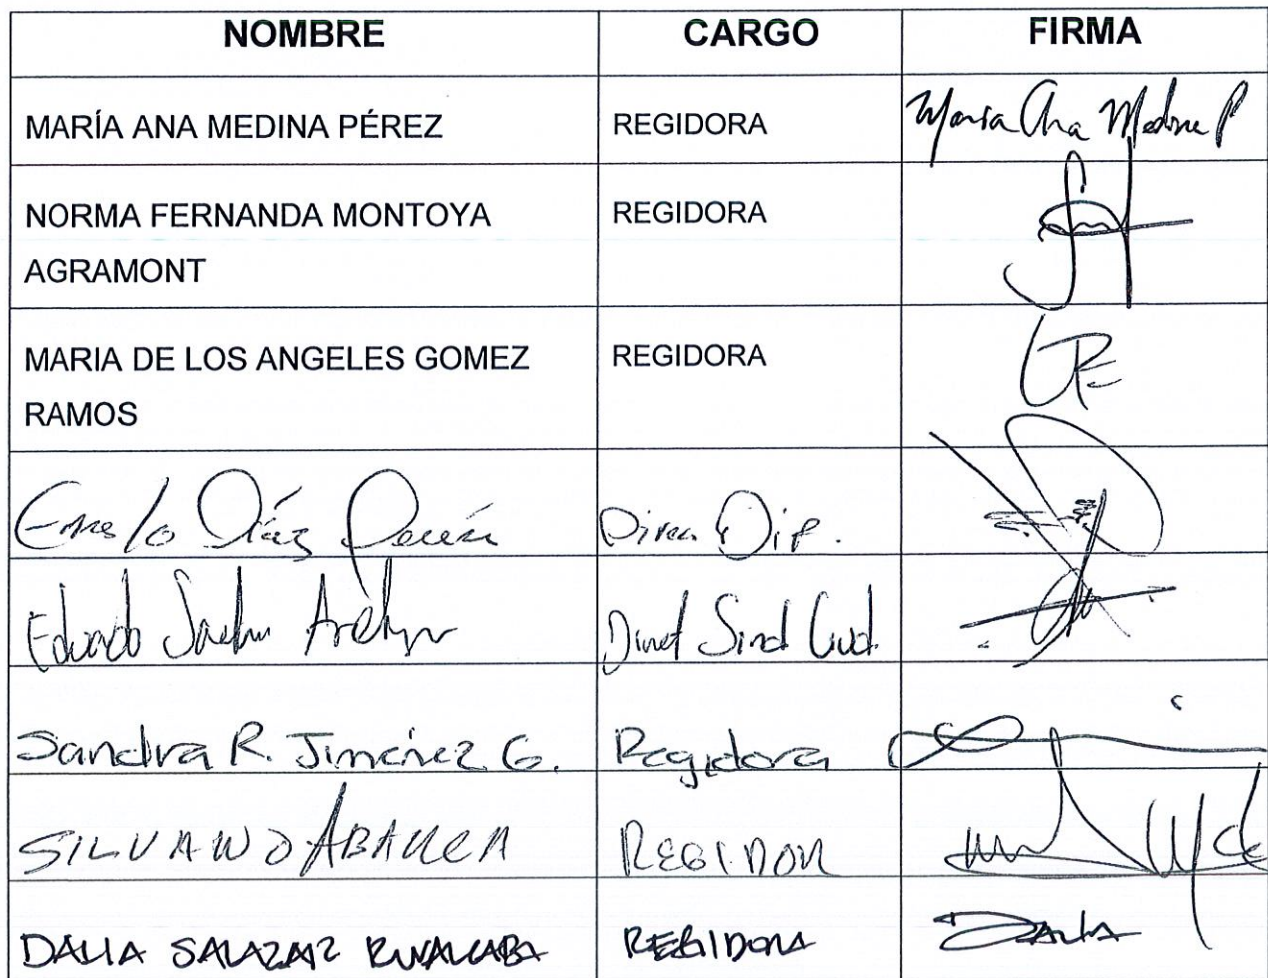 NOMBRE CARGO FIRMA
MARÍA ANA MEDINA PÉREZ REGIDORA Maria Ana Medina P
NORMA FERNANDA MONTOYA REGIDORA
AGRAMONT
MARIA DE LOS ANGELES GOMEZ REGIDORA
RAMOS
Díaz
Eduardo Sind
Sandra R. Jiménez G. Regidora
SILVANO ABARCA REGIDOR
DALIA SALAZAR RUVALCABA REGIDORA Dalia